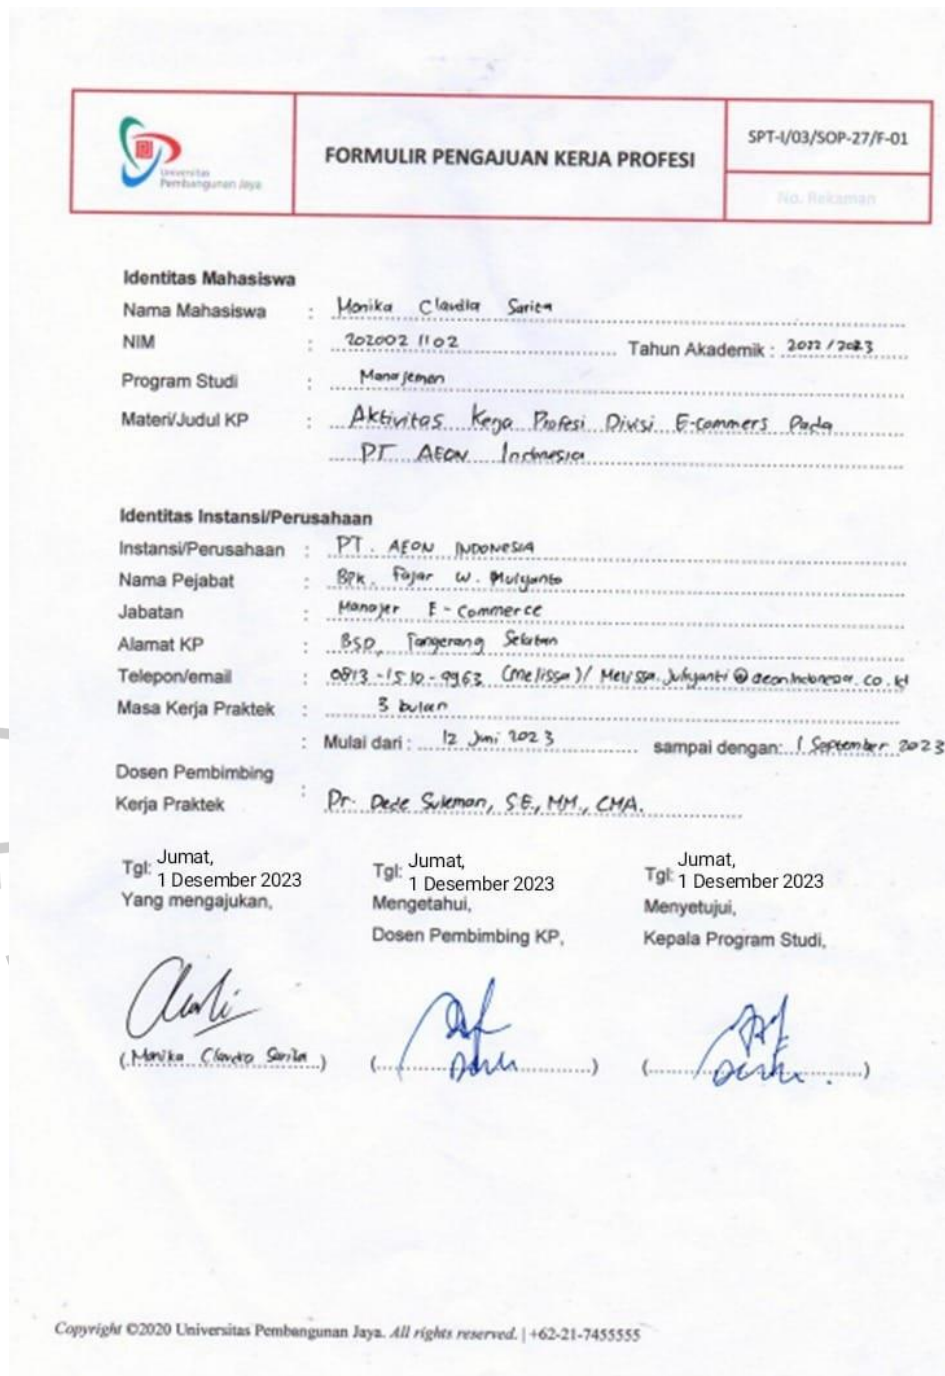 Universitas
Pembangunan Jaya
FORMULIR PENGAJUAN KERJA PROFESI
SPT-I/03/SOP-27/F-01
No. Rekaman
Identitas Mahasiswa
Nama Mahasiswa : Monika Claudia Sarita
NIM : 2020021102 Tahun Akademik : 2022/2023
Program Studi : Manajemen
Materi/Judul KP : Aktivitas Kerja Profesi Divisi E-commers Pada
PT AEON Indonesia
Identitas Instansi/Perusahaan
Instansi/Perusahaan : PT. AEON INDONESIA
Nama Pejabat : Bpk. Fajar W. Mulyanto
Jabatan : Manajer E-Commerce
Alamat KP : BSD, Tangerang Selatan
Telepon/email : 0813-1510-9963 (Melissa)/ Melissa.Juliyanti@aeonindonesia.co.id
Masa Kerja Praktek : 3 bulan
: Mulai dari : 12 Juni 2023 sampai dengan: 1 September 2023
Dosen Pembimbing
Kerja Praktek : Dr. Dede Suleman, SE., MM., CMA.
Tgl: Jumat, 1 Desember 2023
Yang mengajukan,
(Monika Claudia Sarita)
Tgl: Jumat, 1 Desember 2023
Mengetahui,
Dosen Pembimbing KP,
Tgl: Jumat, 1 Desember 2023
Menyetujui,
Kepala Program Studi,
Copyright ©2020 Universitas Pembangunan Jaya. All rights reserved. | +62-21-7455555